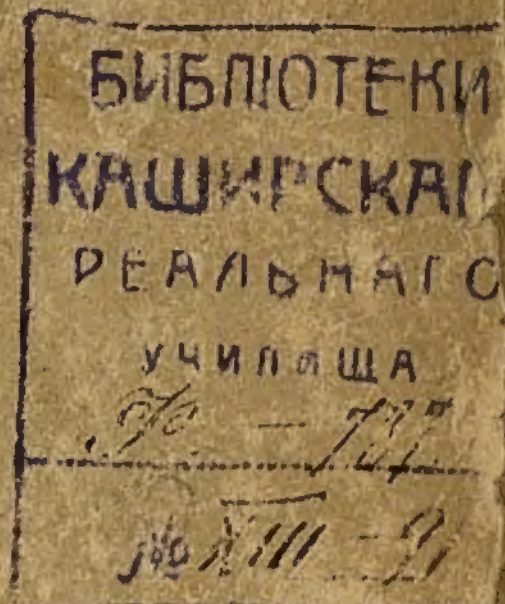 БИБЛІОТЕКИ
КАШИРСКАГ
РЕАЛЬНАГО
УЧИЛИЩА
№ XIII - 9